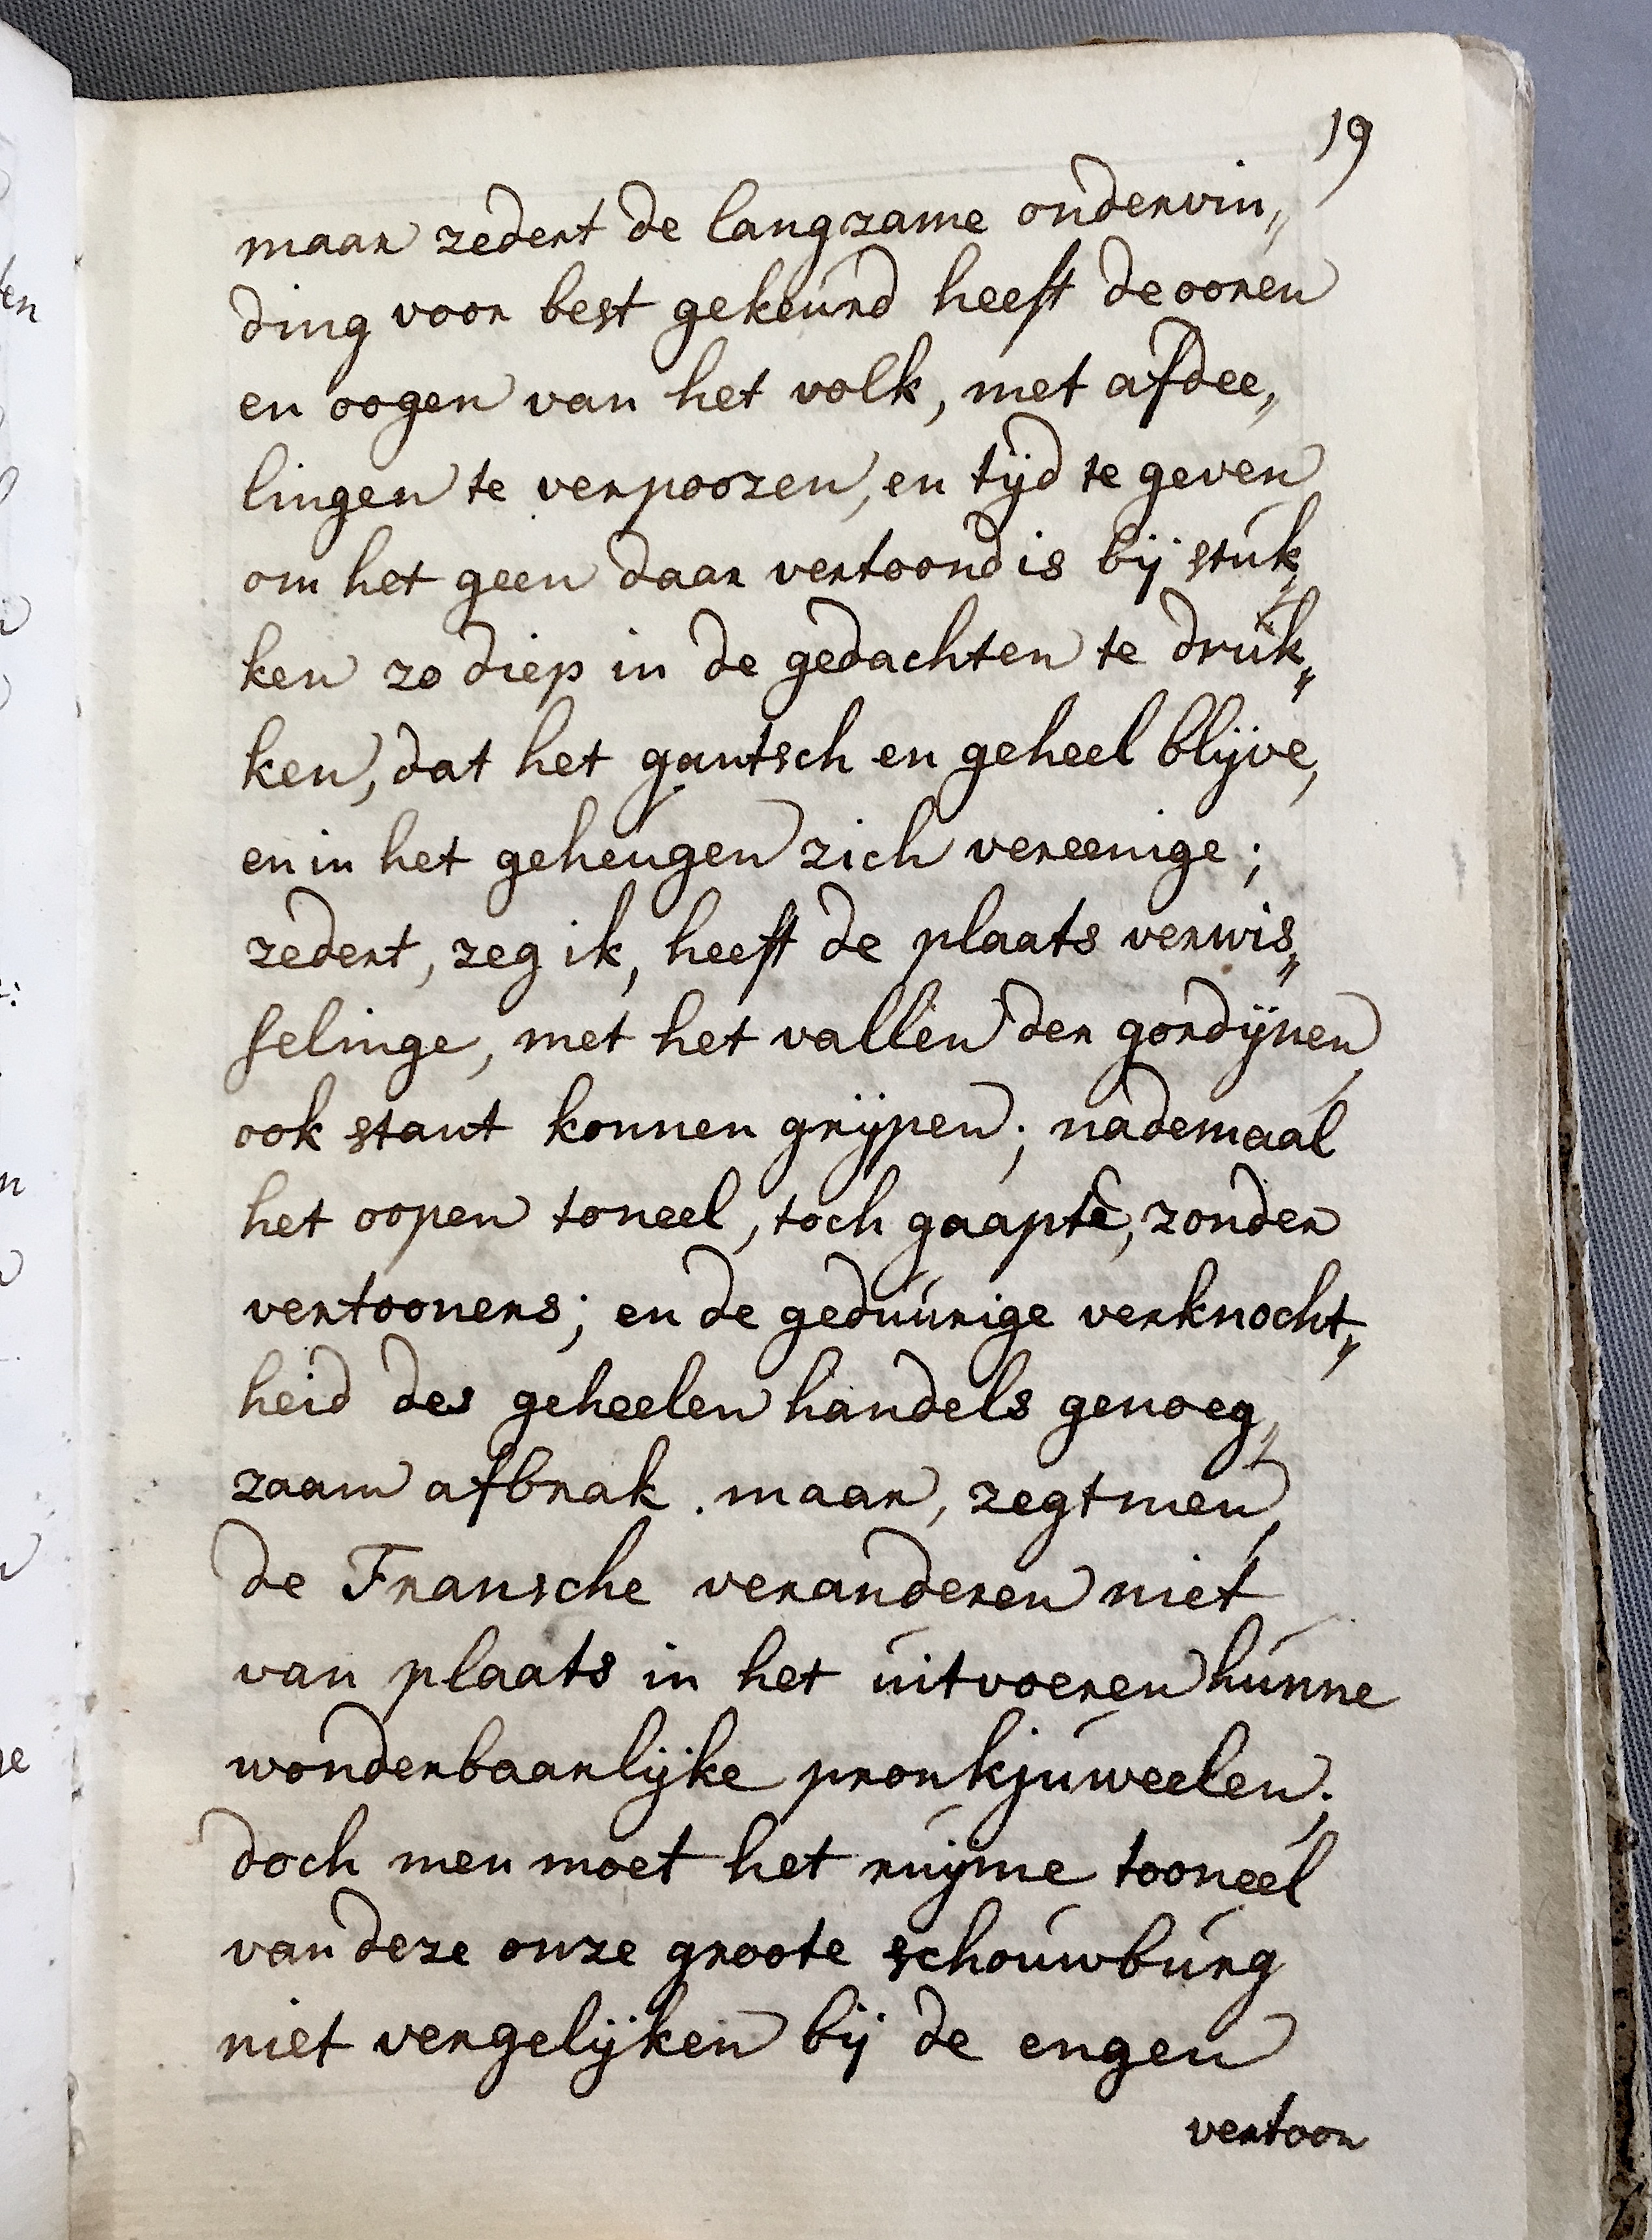 19
maar zedert de langzame ondervin„
ding voor best gekeurd heeft de ooren
en oogen van het volk, met afdee„
lingen te verpoozen, en tijd te geven
om het geen daar vertoond is bij stuk„
ken zo diep in de gedachten te druk„
ken, dat het gantsch en geheel blijve,
en in het geheugen zich vereenige;
zedert, zeg ik, heeft de plaats verwis„
selinge, met het vallen der gordijnen,
ook stant konnen grijpen; nademaal
het oopen toneel, toch gaapte, zonder
vertooners; en de geduurige verknocht„
heid des geheelen handels genoeg„
zaam afbrak. maar, zegt men,
de Fransche veranderen niet
van plaats in het uitvoeren hunne
wonderbaarlijke pronkjuweelen;
doch men moet het ruijme tooneel
van deze onze groote schouwburg
niet vergelijken bij de engen
vertoon